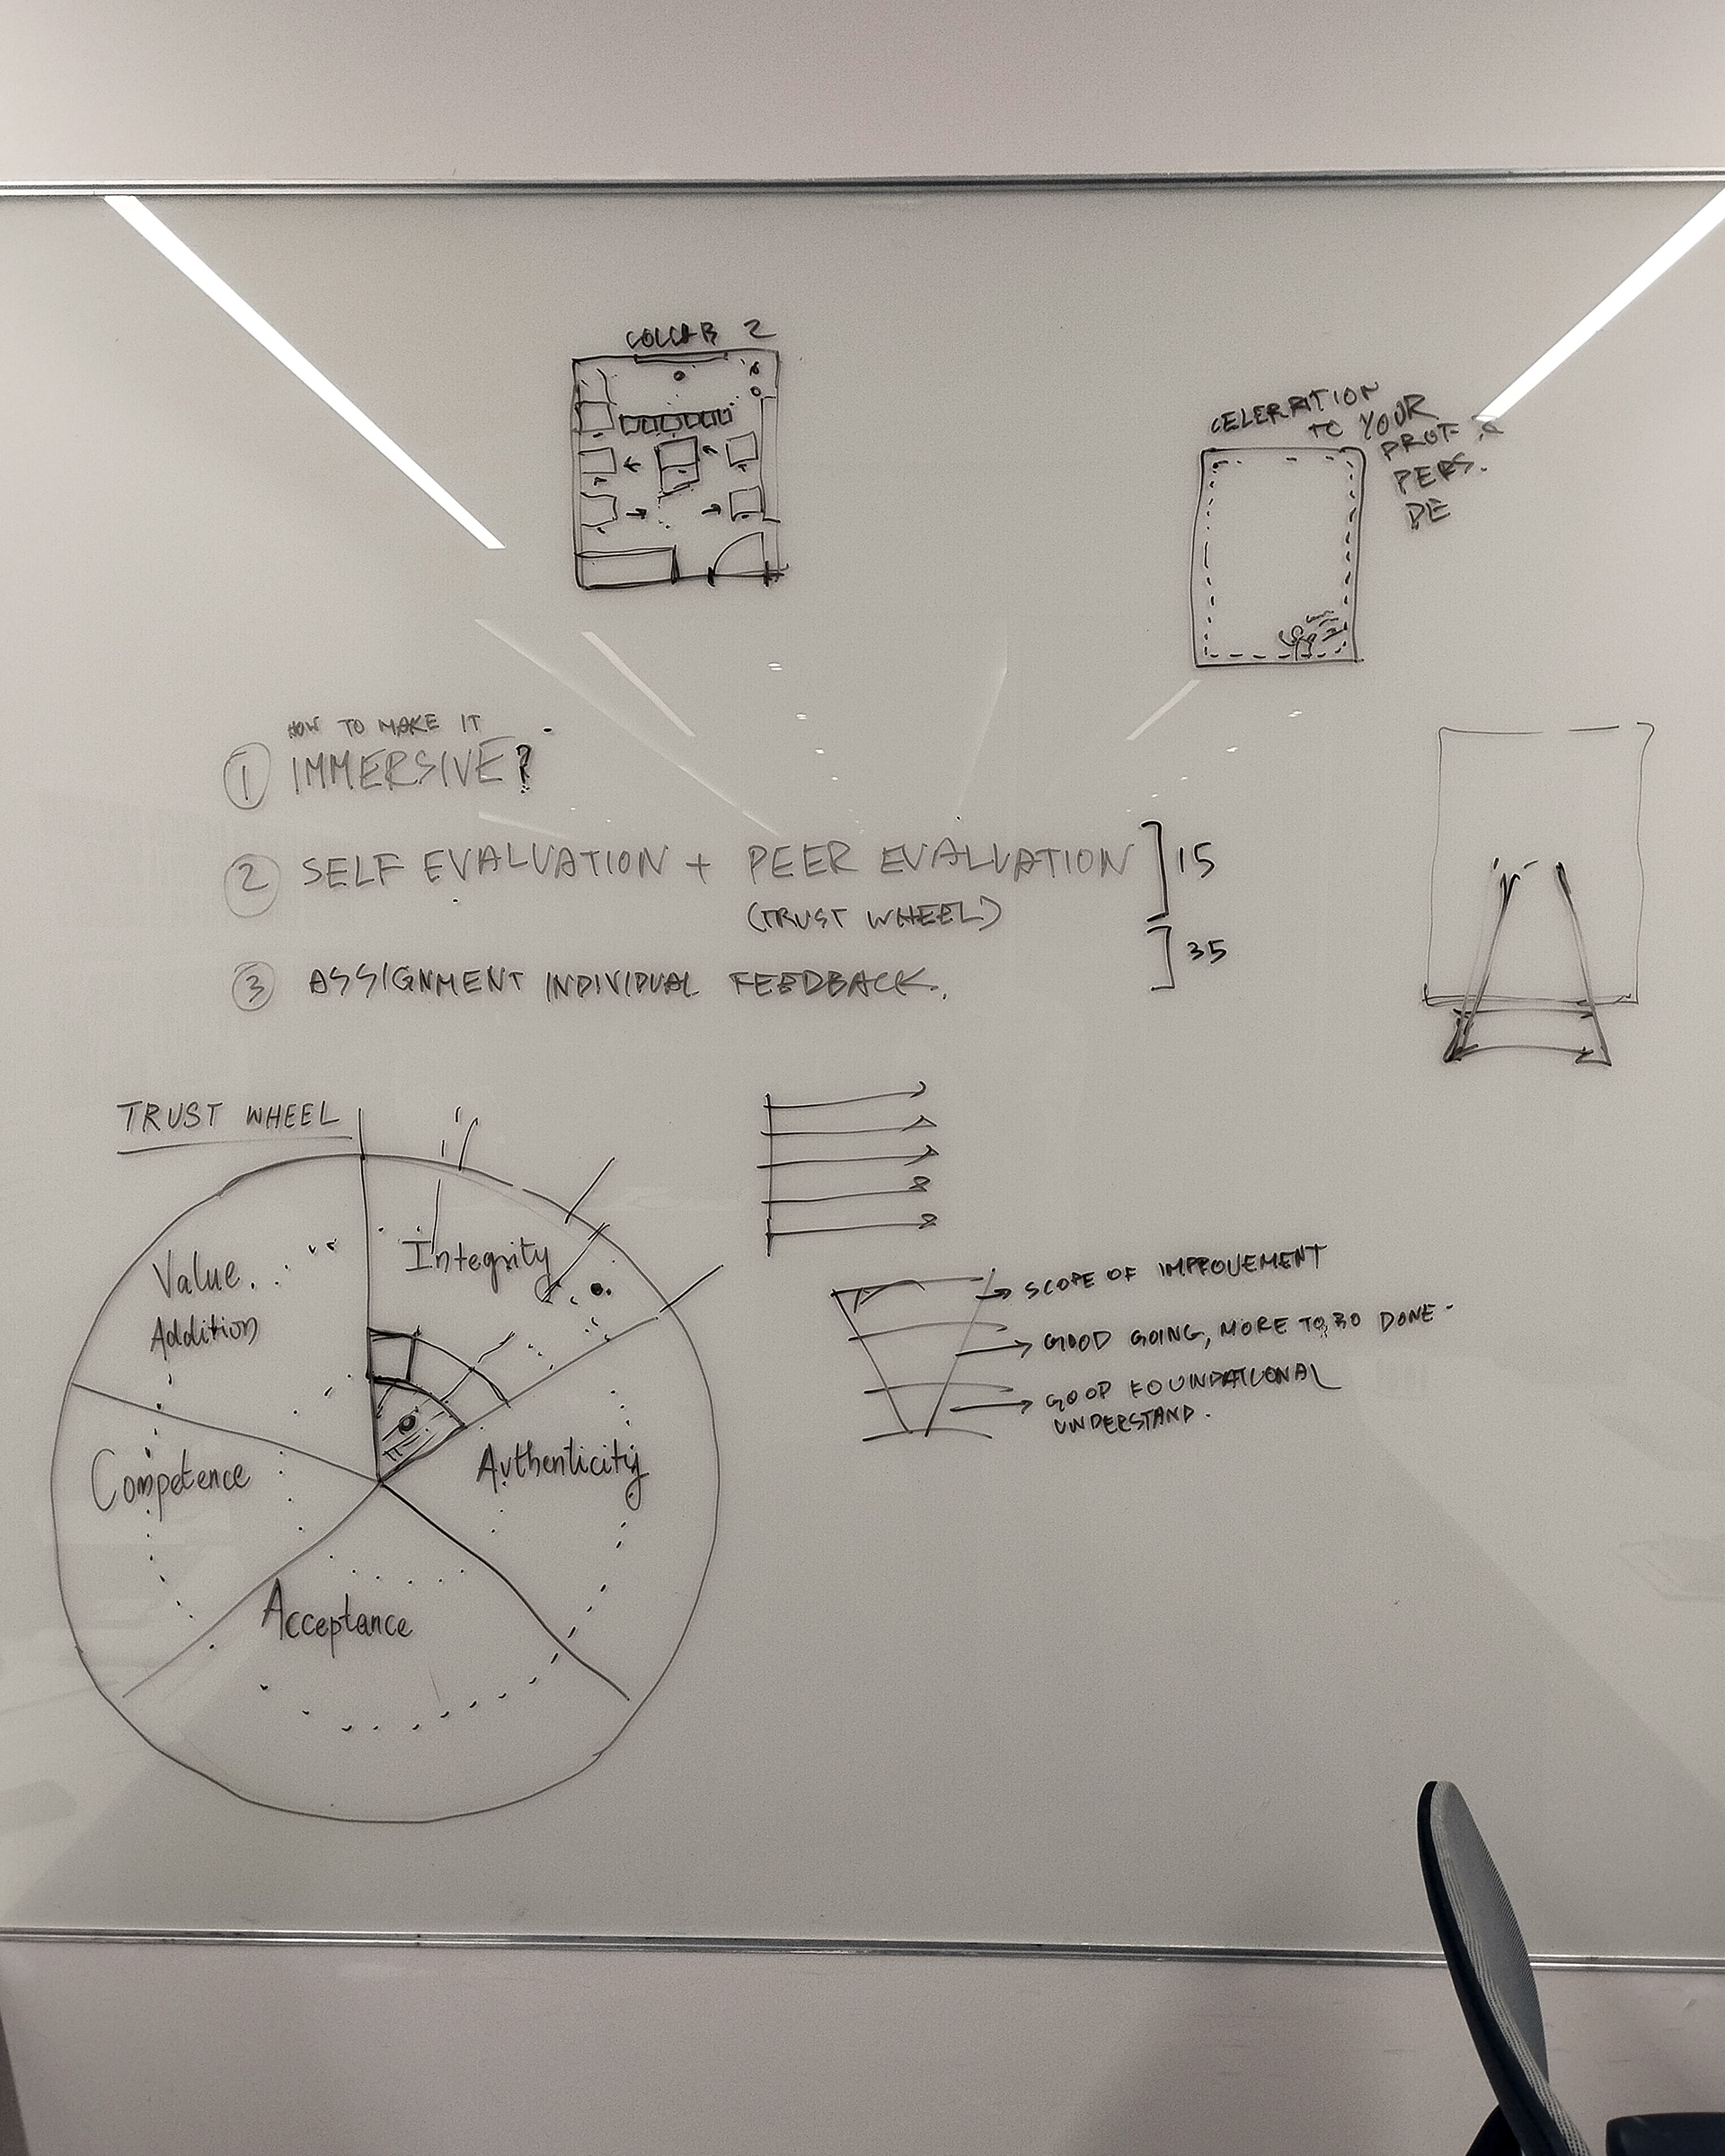 COLLAB 2
CELEBRATION
TO YOUR
PROF &
PERS.
DE
HOW TO MAKE IT
1 IMMERSIVE?
2 SELF EVALUATION + PEER EVALUATION ] 15
(TRUST WHEEL)
3 ASSIGNMENT INDIVIDUAL FEEDBACK. ] 35
TRUST WHEEL
Value
Addition
Integrity
Competence
Authenticity
Acceptance
→ SCOPE OF IMPROVEMENT
→ GOOD GOING, MORE TO BO DONE.
→ GOOD FOUNDATIONAL
UNDERSTAND.